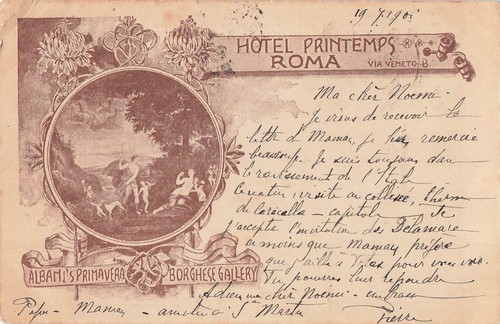 19 7 190
HOTEL PRINTEMPS
ROMA
VIA VENETO. 8.
Ma chèr Noémi.
je viens de recevoir la
lettre d Maman, je remercie
beaucoup. Je suis toujours dans
le ravissement de l'Italie
matin visite au colisée, thermes
de Caracalla - capitole. Je
j'accepte l'invitation des Delamare
a moins que Maman préfère
que j'aille à pour vous voir.
Tu pourras leur répondre
Adieu ma chèr Noémi - embrasse
Papa - Maman - Martin
Pierre
ALBANI'S PRIMAVERA
BORGHESE GALLERY